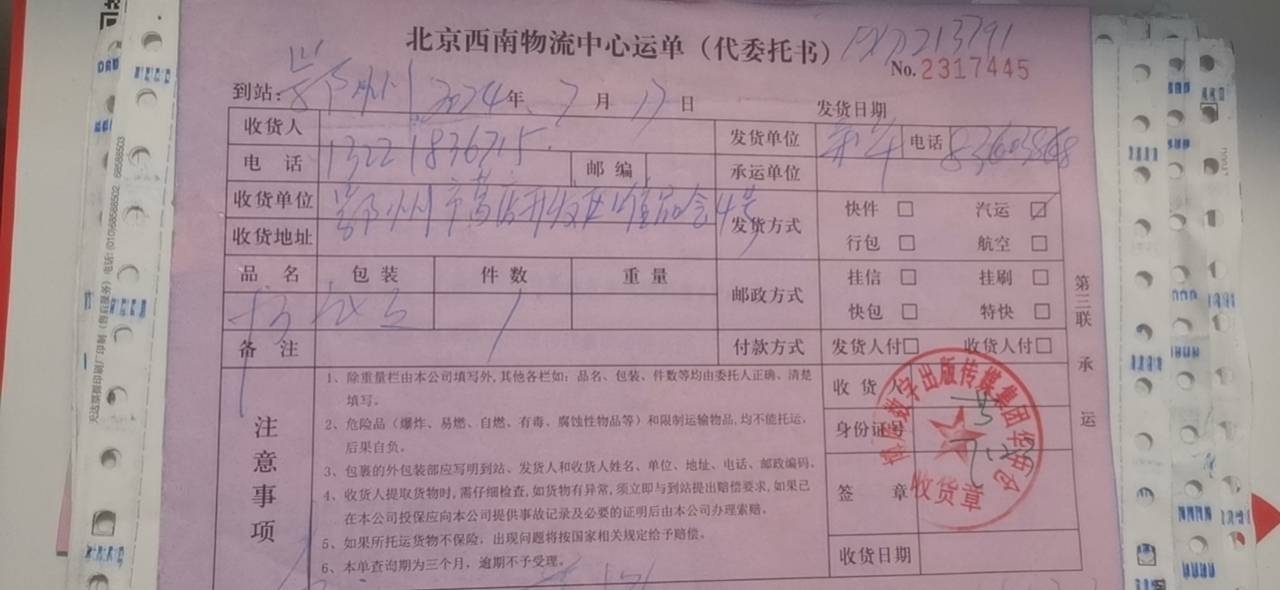 北京西南物流中心运单（代委托书）
No. 2317445
到站：鄂州 2024年 7月 17日 发货日期
收货人 发货单位 电话
电 话 13221836715 邮 编 承运单位
收货单位 鄂州市葛店开发区唯品会4号
收货地址 发货方式 快件 □ 汽运 ☑
行包 □ 航空 □
品 名 包 装 件 数 重 量 邮政方式 挂信 □ 挂刷 □
1 快包 □ 特快 □
备 注 付款方式 发货人付□ 收货人付□
注意事项
1、除重量栏由本公司填写外,其他各栏如：品名、包装、件数等均由委托人正确、清楚
填写。
2、危险品（爆炸、易燃、自燃、有毒、腐蚀性物品等）和限制运输物品,均不能托运,
后果自负。
3、包裹的外包装部应写明到站、发货人和收货人姓名、单位、地址、电话、邮政编码。
4、收货人提取货物时,需仔细检查,如货物有异常,须立即与到站提出赔偿要求,如果已
在本公司投保应向本公司提供事故记录及必要的证明后由本公司办理索赔。
5、如果所托运货物不保险，出现问题将按国家相关规定给予赔偿。
6、本单查询期为三个月，逾期不予受理。
收 货 人
身份证号
签 章
收货日期
数字出版传媒集团华中仓
收货章
第三联 承 运